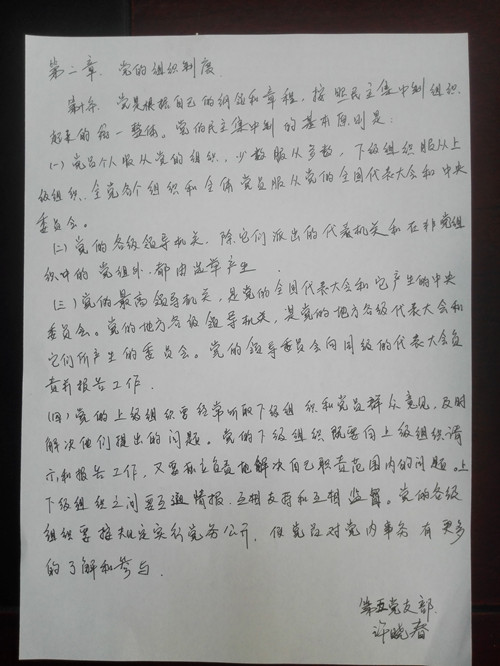 第二章 党的组织制度
第十条 党是根据自己的纲领和章程,按照民主集中制组织
起来的统一整体。党的民主集中制的基本原则是:
(一)党员个人服从党的组织,少数服从多数,下级组织服从上
级组织,全党各个组织和全体党员服从党的全国代表大会和中央
委员会。
(二)党的各级领导机关,除它们派出的代表机关和在非党组
织中的党组外,都由选举产生.
(三)党的最高领导机关,是党的全国代表大会和它产生的中央
委员会。党的地方各级领导机关,是党的地方各级代表大会和
它们所产生的委员会。党的领导委员会向同级的代表大会负
责并报告工作.
(四)党的上级组织要经常听取下级组织和党员群众意见,及时
解决他们提出的问题。党的下级组织既要向上级组织请
示和报告工作,又要独立负责地解决自己职责范围内的问题。上
下级组织之间要互通情报、互相支持和互相监督。党的各级
组织要按规定实行党务公开,使党员对党内事务有更多
的了解和参与.
第五党支部
许晓春